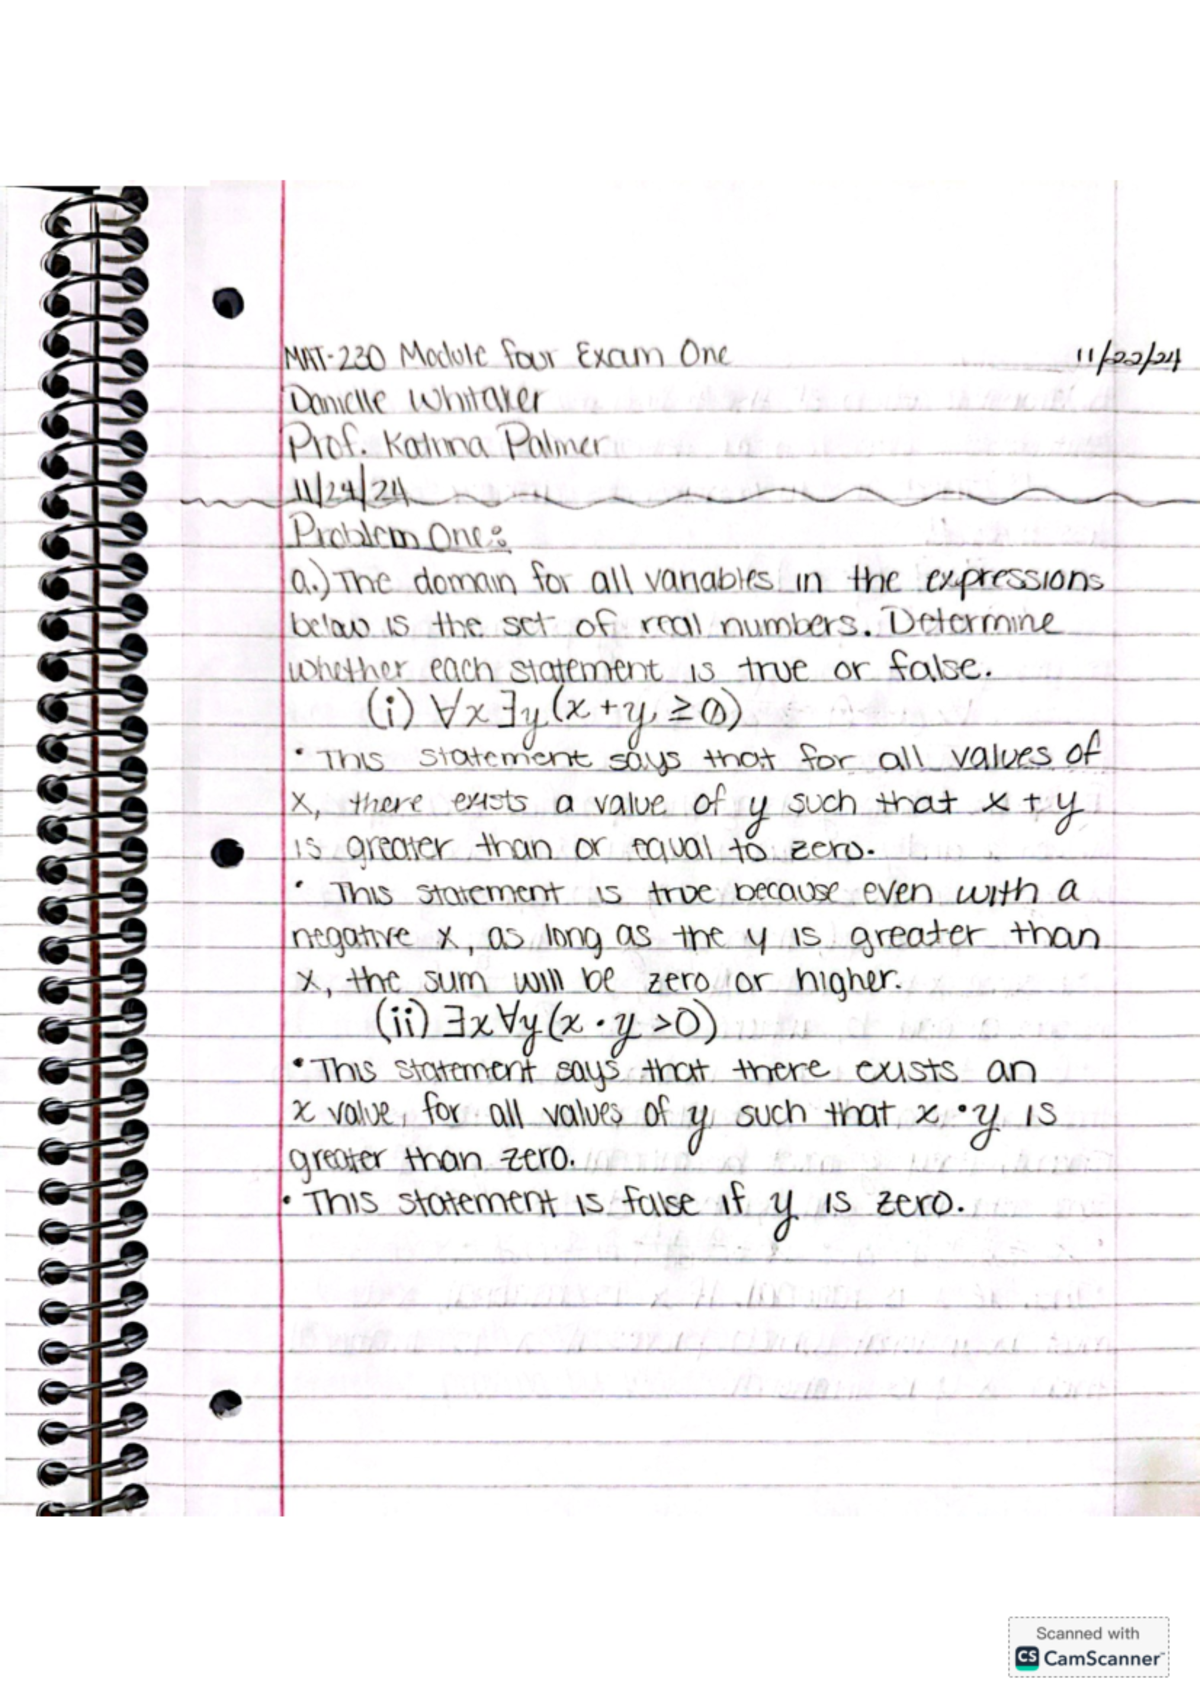 MAT-230 Module Four Exam One 11/22/24
Danielle Whitaker
Prof. Katrina Palmer
11/24/24
Problem One:
a.) The domain for all variables in the expressions
below is the set of real numbers. Determine
whether each statement is true or false.
(i) ∀x∃y(x+y≥0)
• This statement says that for all values of
x, there exists a value of y such that x + y
is greater than or equal to zero.
• This statement is true because even with a
negative x, as long as the y is greater than
x, the sum will be zero or higher.
(ii) ∃x∀y(x·y>0)
• This statement says that there exists an
x value, for all values of y such that x·y is
greater than zero.
• This statement is false if y is zero.
Scanned with
CS CamScanner